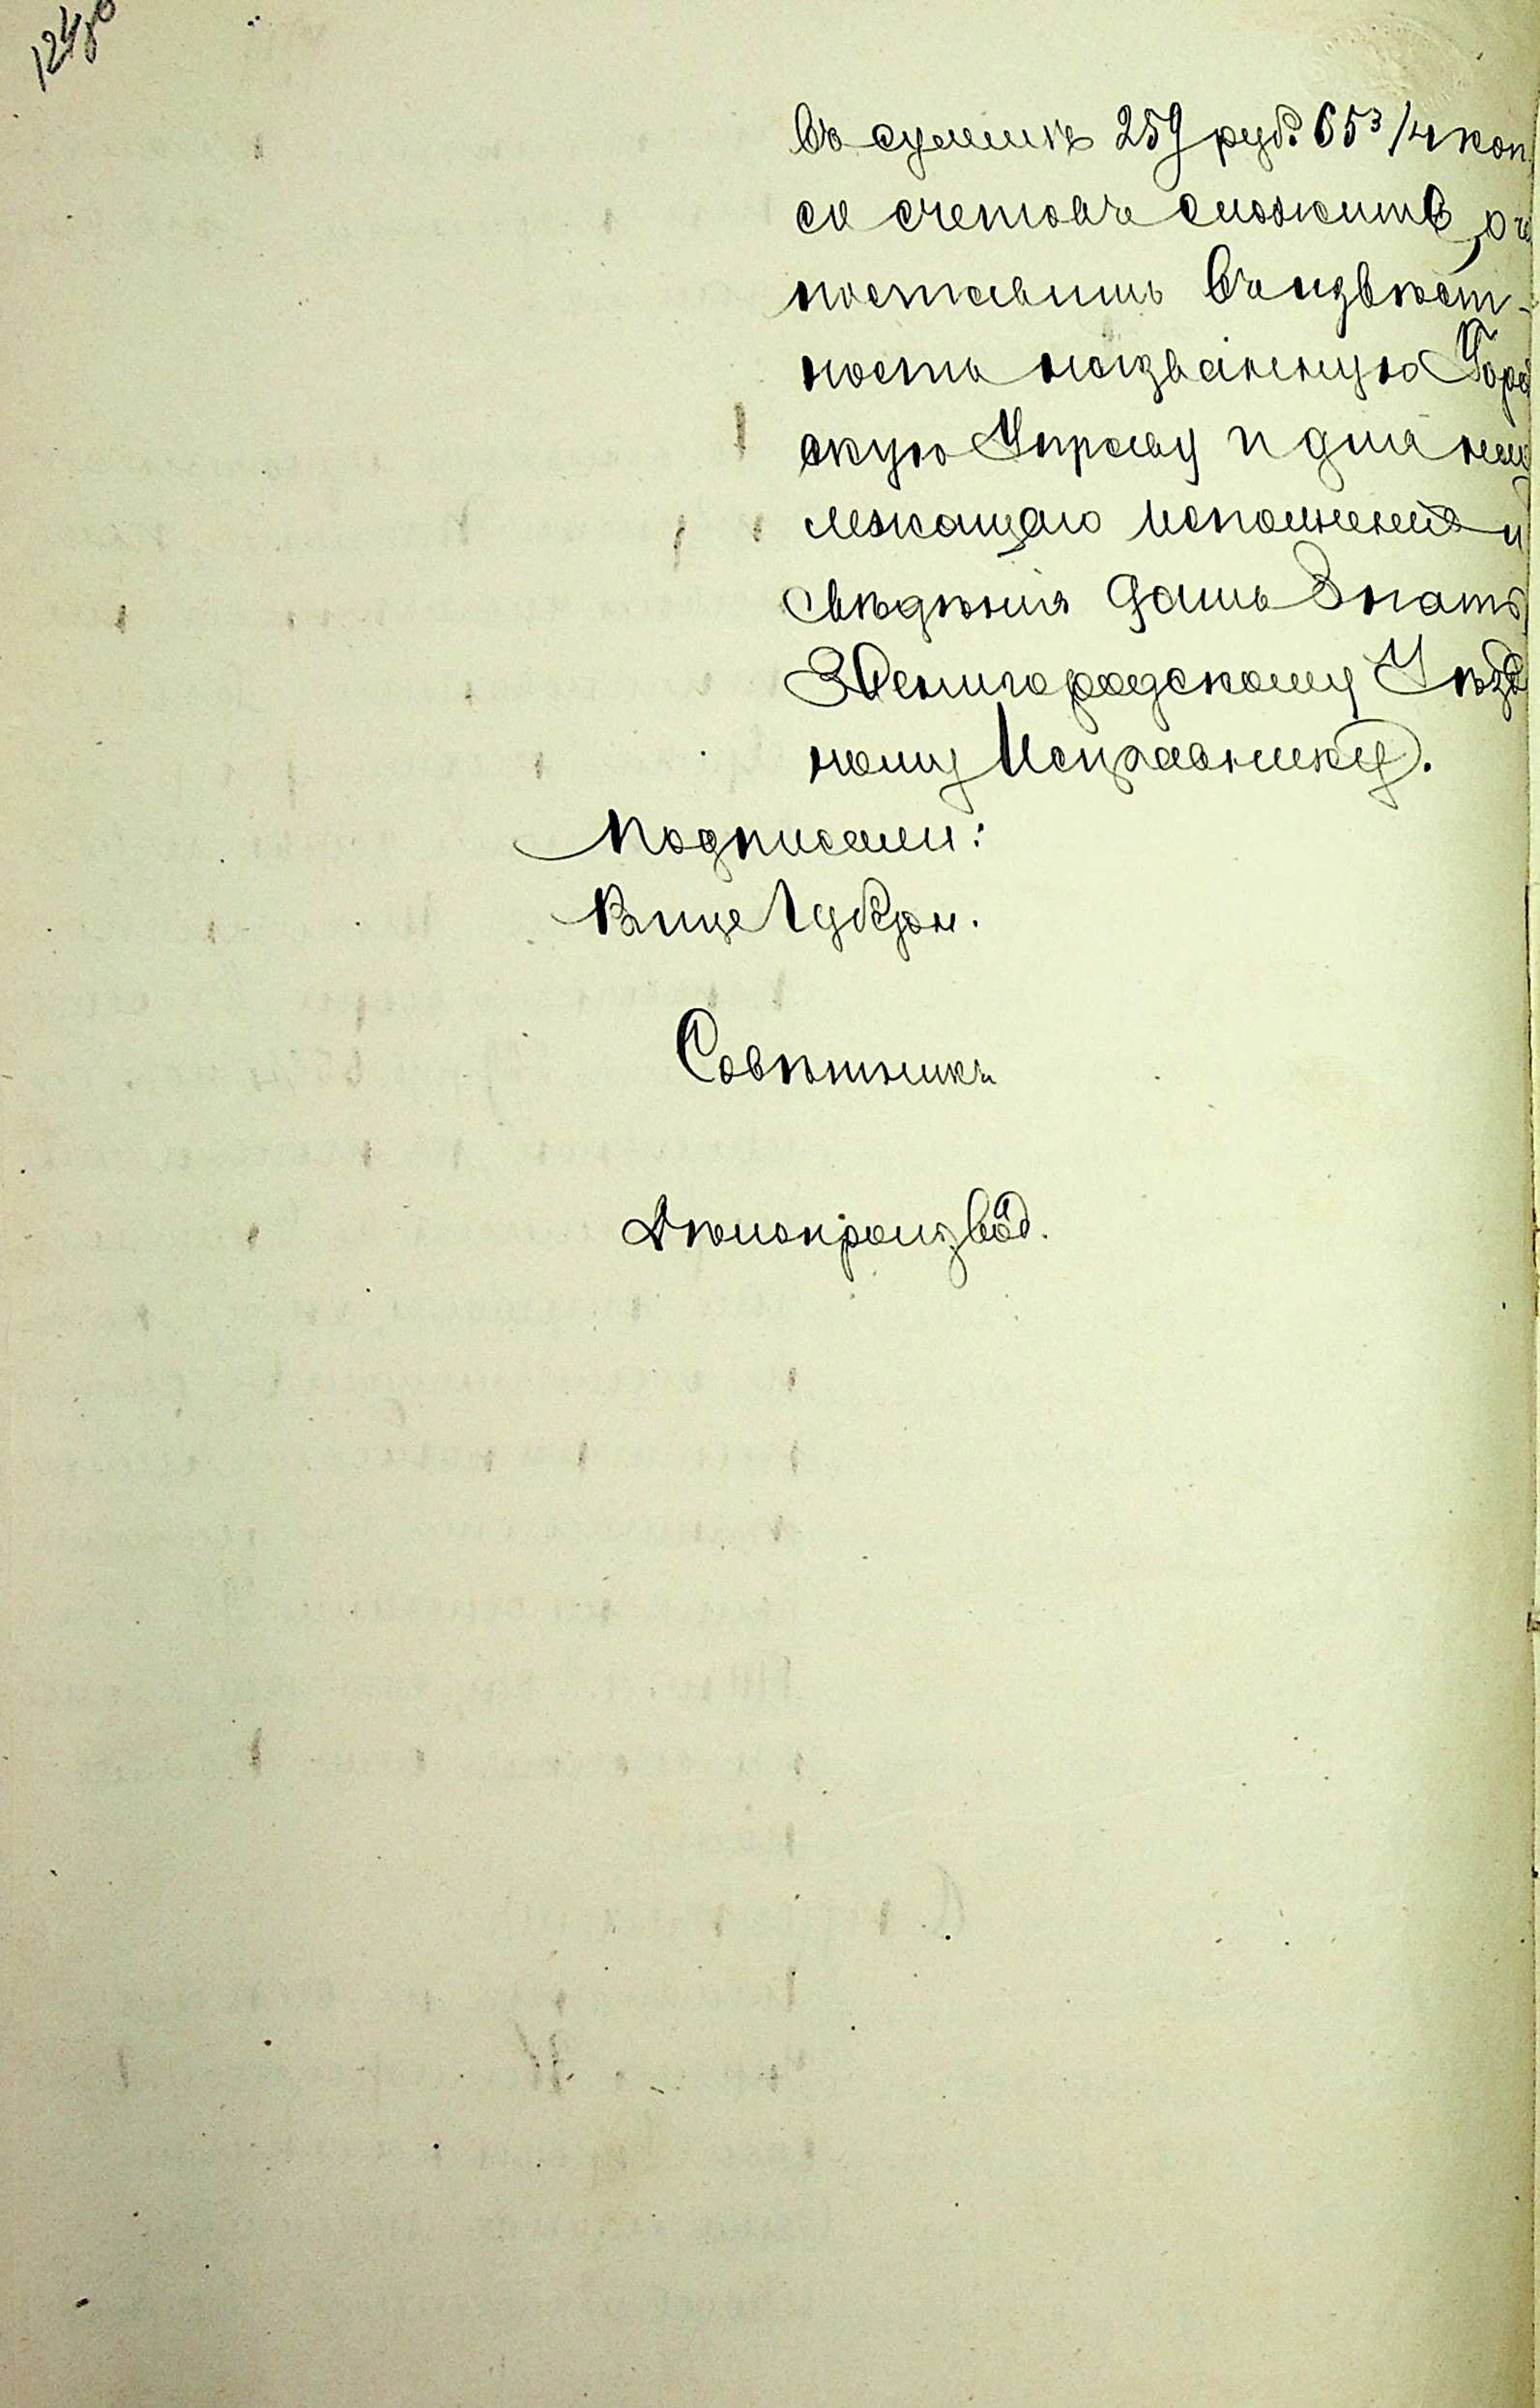 124об
въ суммѣ 259 руб. 65 3/4 коп
со счетовъ сложить, о че
поставить въ извѣст-
ность названную Город
скую Управу и для над
лежащаго исполненія и
свѣдѣнія дать знать
Звенигородскому Уѣзд
ному Исправнику.
Подписали:
Вице Губерн.
Совѣтникъ
Дѣлопроизвод.